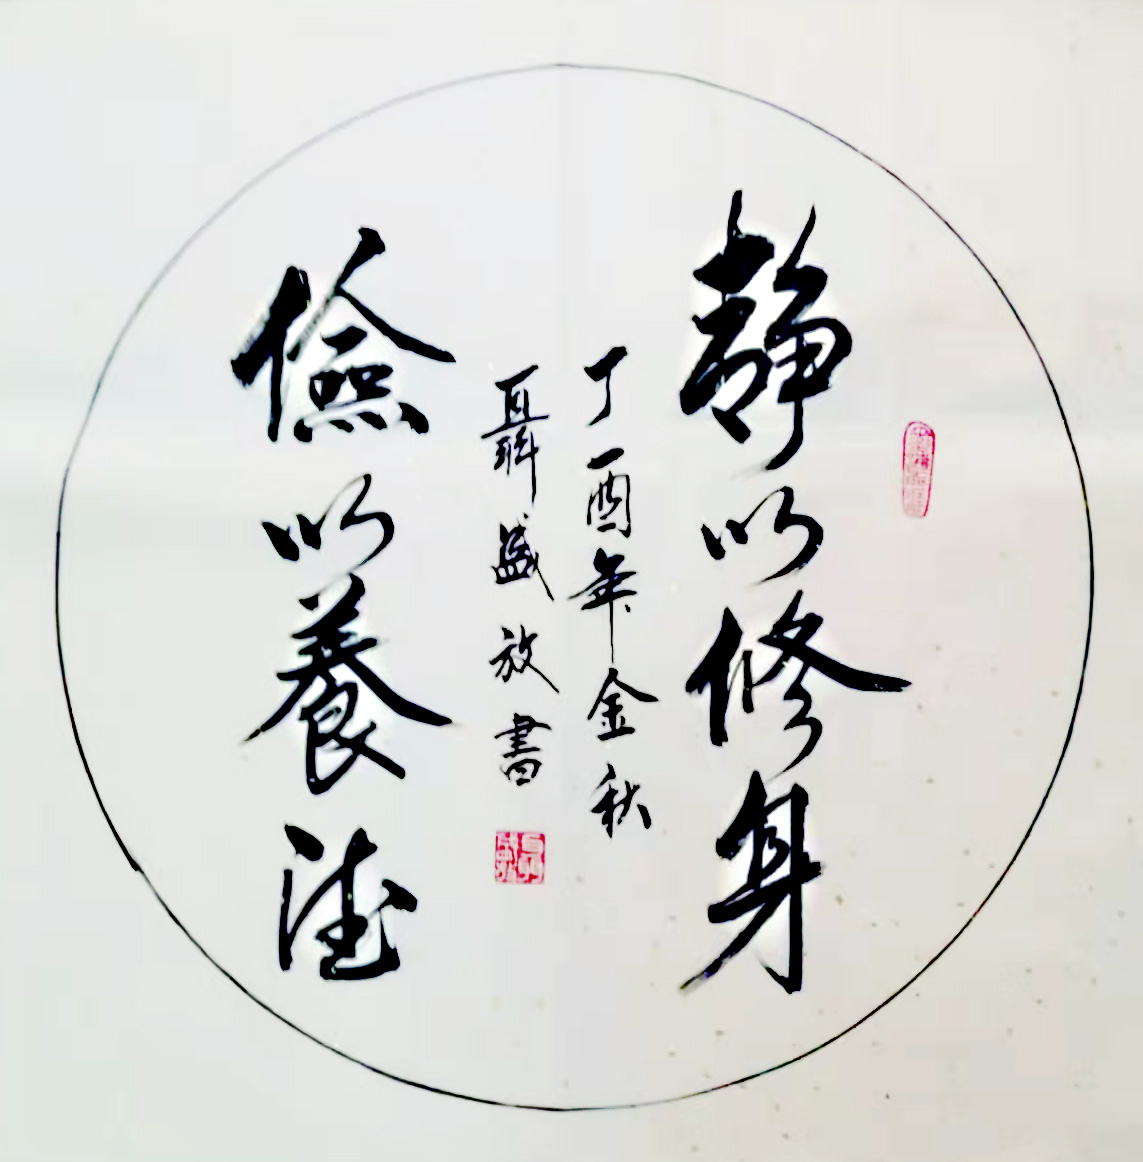 靜以修身
丁酉年金秋
聶盛放書
儉以養德